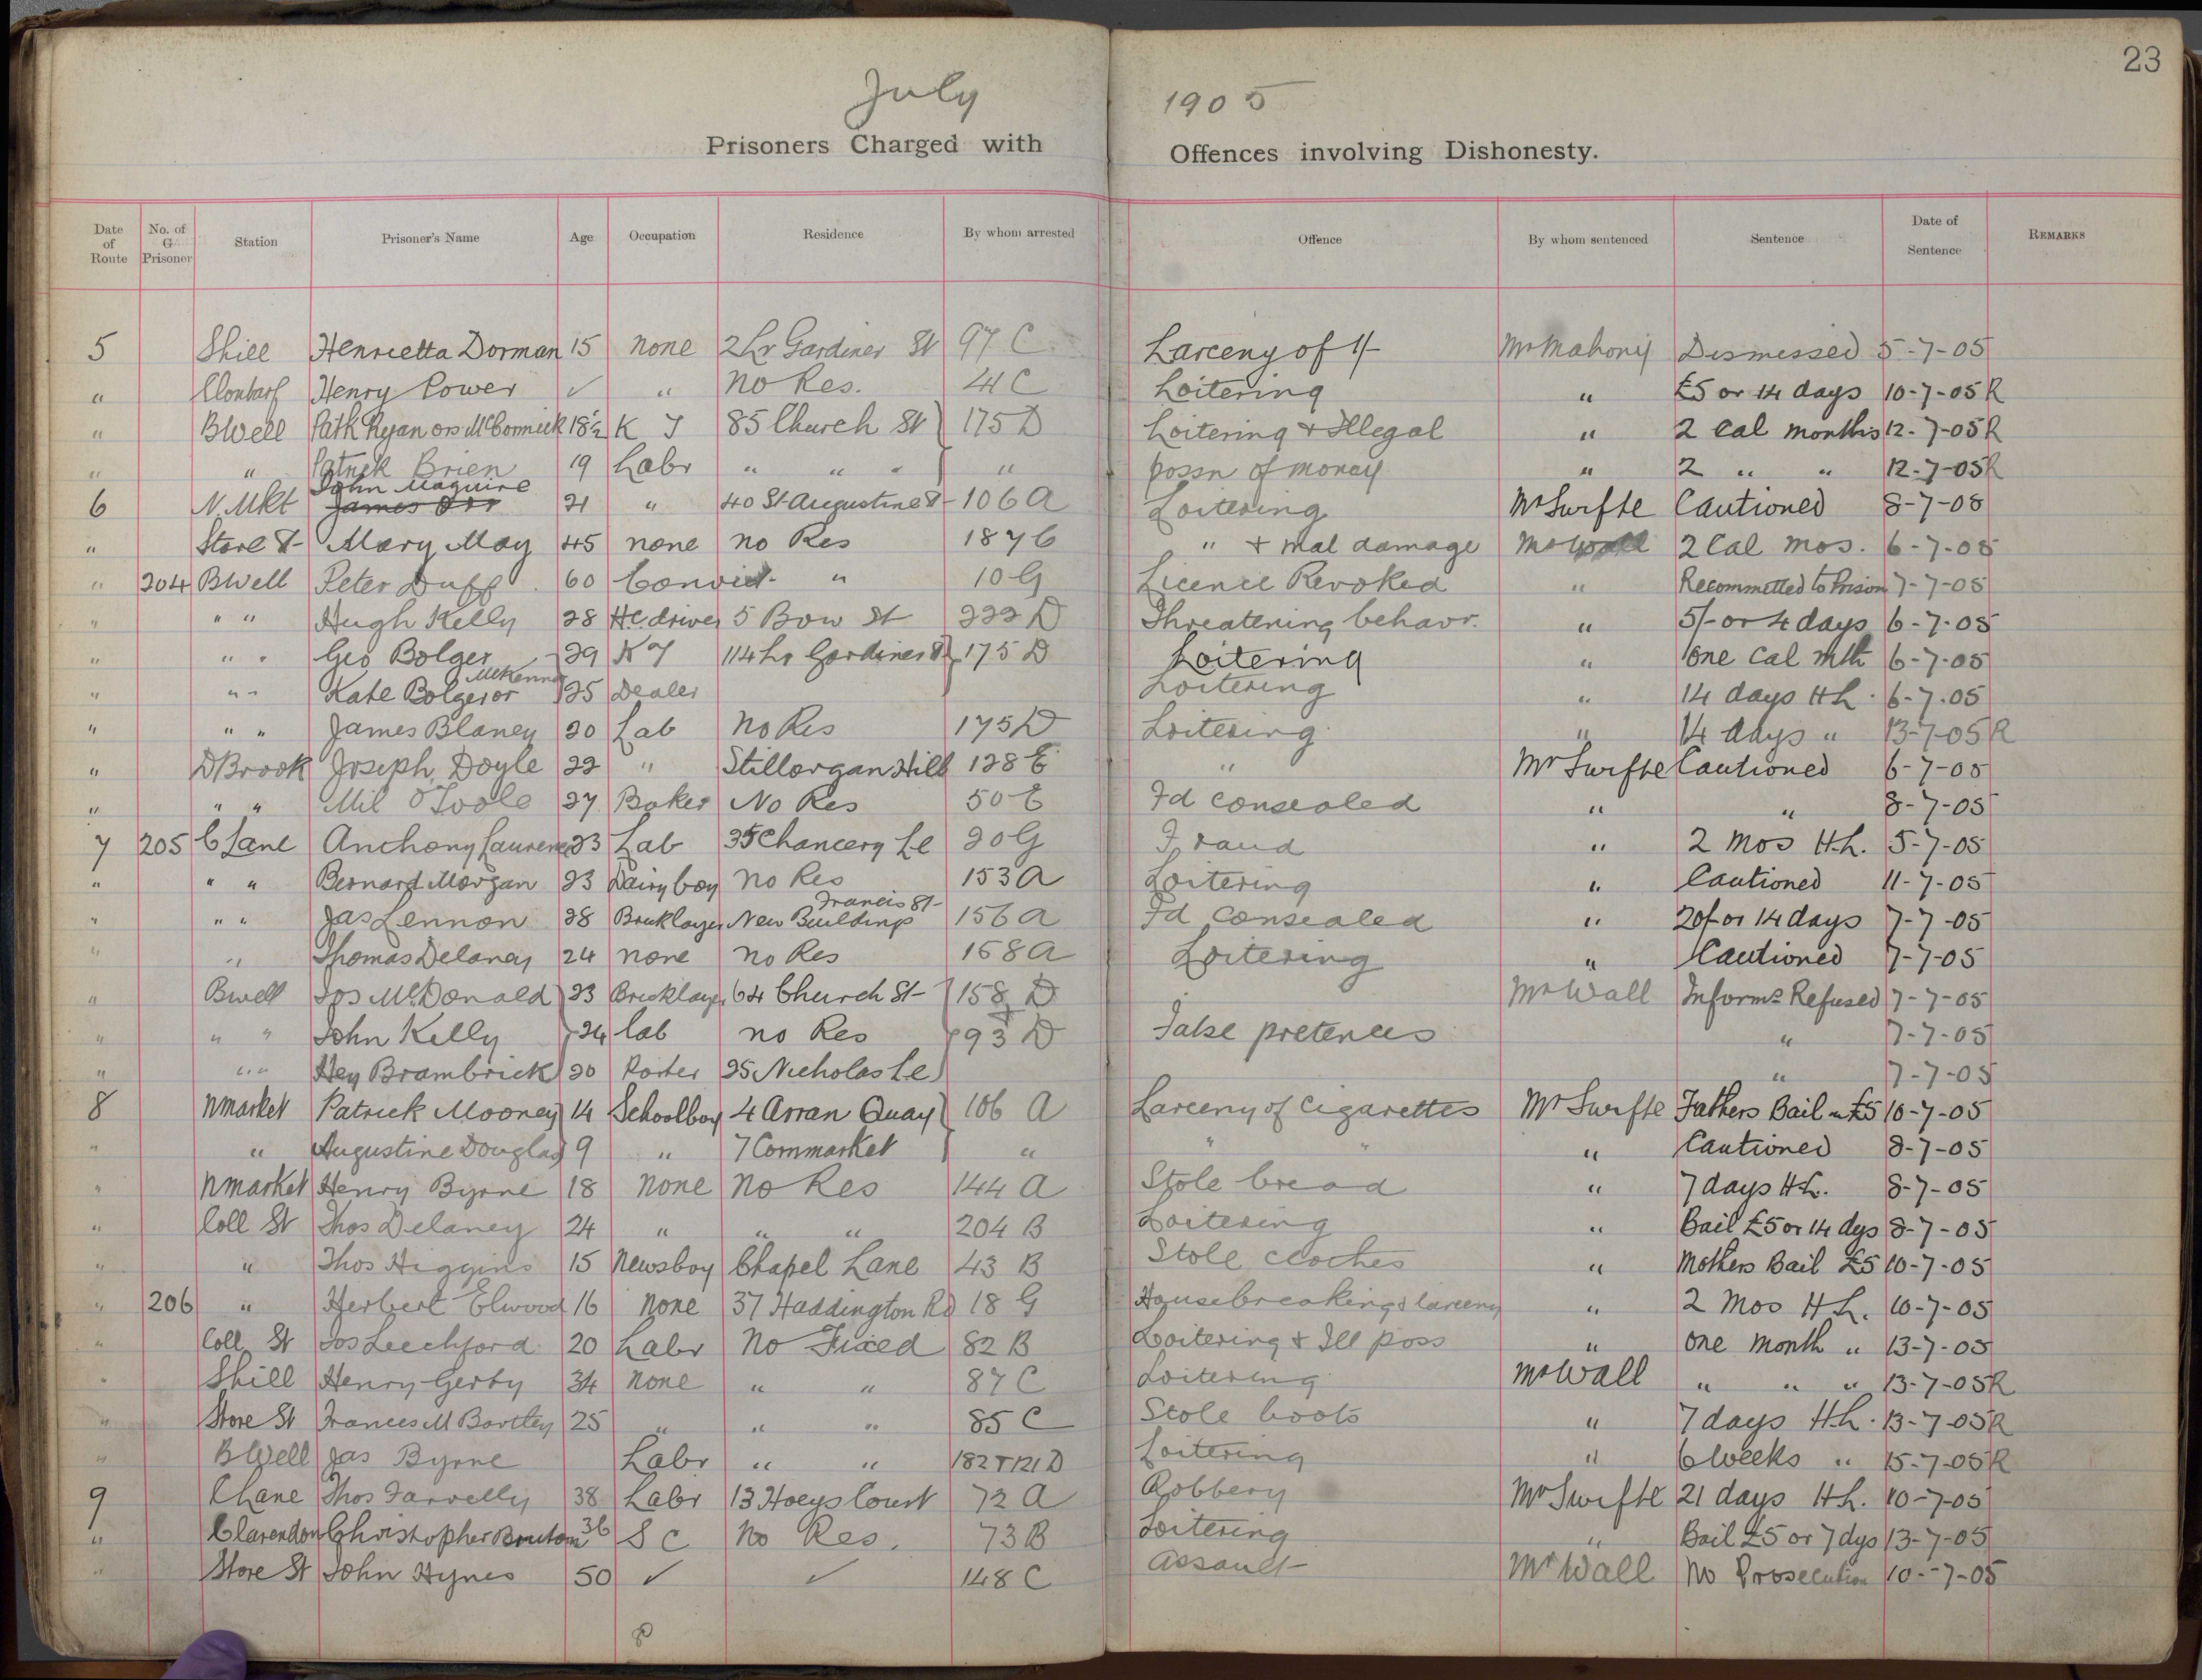 23
July 1905
Prisoners Charged with Offences involving Dishonesty.
Date of Route No. of G Prisoner Station Prisoner's Name Age Occupation Residence By whom arrested Offence By whom sentenced Sentence Date of Sentence REMARKS
5 Shill Henrietta Dorman 15 none 2 Lr Gardiner St 97 C Larceny of 1/- Mr Mahony Dismissed 5-7-05
" Clontarf Henry Power ✓ " No Res. 41 C Loitering " £5 or 14 days 10-7-05 R
" BWell Patk Ryan ors McCormick 18½ K J 85 Church St 175 D Loitering + Illegal " 2 Cal months 12-7-05 R
" " Patrick Brien 19 Labr " " " " possn of money " 2 " " 12-7-05 R
John Maguire
6 N. Mkt James Orr 21 " 40 St Augustine St 106 A Loitering Mr Swifte Cautioned 8-7-05
" Store St Mary May 45 none no Res 187 C " + mal damage Mr Wall 2 Cal mos. 6-7-05
" 204 BWell Peter Duff 60 Convict " 10 G Licence Revoked " Recommitted to Prison 7-7-05
" " " Hugh Kelly 28 HC driver 5 Bow St 222 D Threatening behavr. " 5/- or 4 days 6-7-05
" " " Geo Bolger 29 K J 114 Lr Gardiner St 175 D Loitering " One Cal mth 6-7-05
McKenna
" " " Kate Bolger or 25 Dealer Loitering " 14 days H L. 6-7-05
" " " James Blaney 20 Lab No Res 175 D Loitering " 14 days " 13-7-05 R
" DBrook Joseph Doyle 22 " Stillorgan Hill 128 E " Mr Swifte Cautioned 6-7-05
" " " Mil O'Toole 27 Baker No Res 50 E Fd Consealed " " 8-7-05
7 205 C Lane Anthony Laurence 23 Lab 35 Chancery Le 20 G Fraud " 2 Mos H.L. 5-7-05
" " " Bernard Morgan 23 Dairy boy No Res 153 A Loitering " Cautioned 11-7-05
Francis St
" " " Jas Lennon 28 Bricklayer New Buildings 156 A Fd Consealed " 20/- or 14 days 7-7-05
" " Thomas Delaney 24 none no Res 158 A Loitering " Cautioned 7-7-05
" Bwell Jos McDonald 23 Bricklayer 64 Church St 158 D Mr Wall Informs Refused 7-7-05
" " " John Kelly 24 lab no Res + 93 D False pretences " 7-7-05
" " " Hey Brambrick 20 Porter 25 Nicholas Le " 7-7-05
8 Nmarket Patrick Mooney 14 Schoolboy 4 Arran Quay 106 A Larceny of Cigarettes Mr Swifte Fathers Bail in £5 10-7-05
" " Augustine Douglas 9 " 7 Cornmarket " " " " Cautioned 8-7-05
" Nmarket Henry Byrne 18 None No Res 144 A Stole bread " 7 days H.L. 8-7-05
" Coll St Thos Delaney 24 " " " 204 B Loitering " Bail £5 or 14 dys 8-7-05
" " Thos Higgins 15 Newsboy Chapel Lane 43 B Stole clothes " Mothers Bail £5 10-7-05
" 206 " Herbert Elwood 16 None 37 Haddington Rd 18 G Housebreaking & larceny " 2 Mos H L. 10-7-05
" Coll St Jos Leechford 20 Labr No Fixed 82 B Loitering + Ill poss " One Month " 13-7-05
" Shill Henry Gerty 34 None " " 87 C Loitering Mr Wall " " " 13-7-05 R
" Store St Frances M Bartley 25 " " " 85 C Stole boots " 7 days H.L. 13-7-05 R
" B Well Jas Byrne Labr " " 182 + 121 D Loitering " 6 weeks " 15-7-05 R
9 C Lane Thos Farrelly 38 Labr 13 Hoeys Court 72 A Robbery Mr Swifte 21 days H.L. 10-7-05
" Clarendon Christopher Bruton 36 S C No Res. 73 B Loitering " Bail £5 or 7 dys 13-7-05
" Store St John Hynes 50 ✓ ✓ 148 C Assault Mr Wall No Prosecution 10-7-05